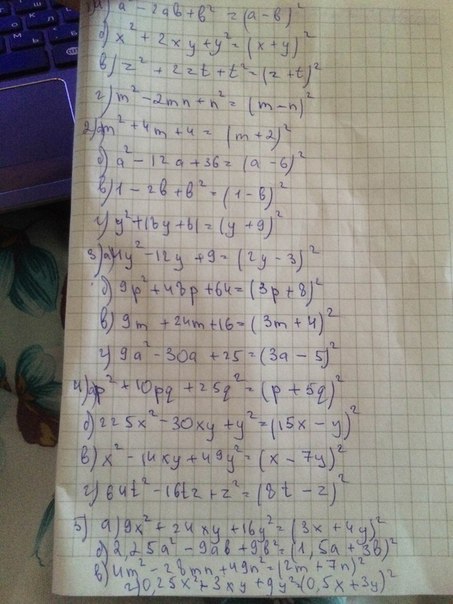 а) a² - 2ab + b² = (a - b)²
б) x² + 2xy + y² = (x + y)²
в) z² + 2zt + t² = (z + t)²
г) m² - 2mn + n² = (m - n)²
2) а) m² + 4m + 4 = (m + 2)²
б) a² - 12a + 36 = (a - 6)²
в) 1 - 2b + b² = (1 - b)²
г) y² + 18y + 81 = (y + 9)²
3) а) 4y² - 12y + 9 = (2y - 3)²
б) 9p² + 48p + 64 = (3p + 8)²
в) 9m + 24m + 16 = (3m + 4)²
г) 9a² - 30a + 25 = (3a - 5)²
4) а) p² + 10pq + 25q² = (p + 5q)²
б) 225x² - 30xy + y² = (15x - y)²
в) x² - 14xy + 49y² = (x - 7y)²
г) 64t² - 16tz + z² = (8t - z)²
5) а) 9x² + 24xy + 16y² = (3x + 4y)²
б) 2,25a² - 9ab + 9b² = (1,5a + 3b)²
в) 4m² - 28mn + 49n² = (2m + 7n)²
г) 0,25x² + 3xy + 9y² = (0,5x + 3y)²